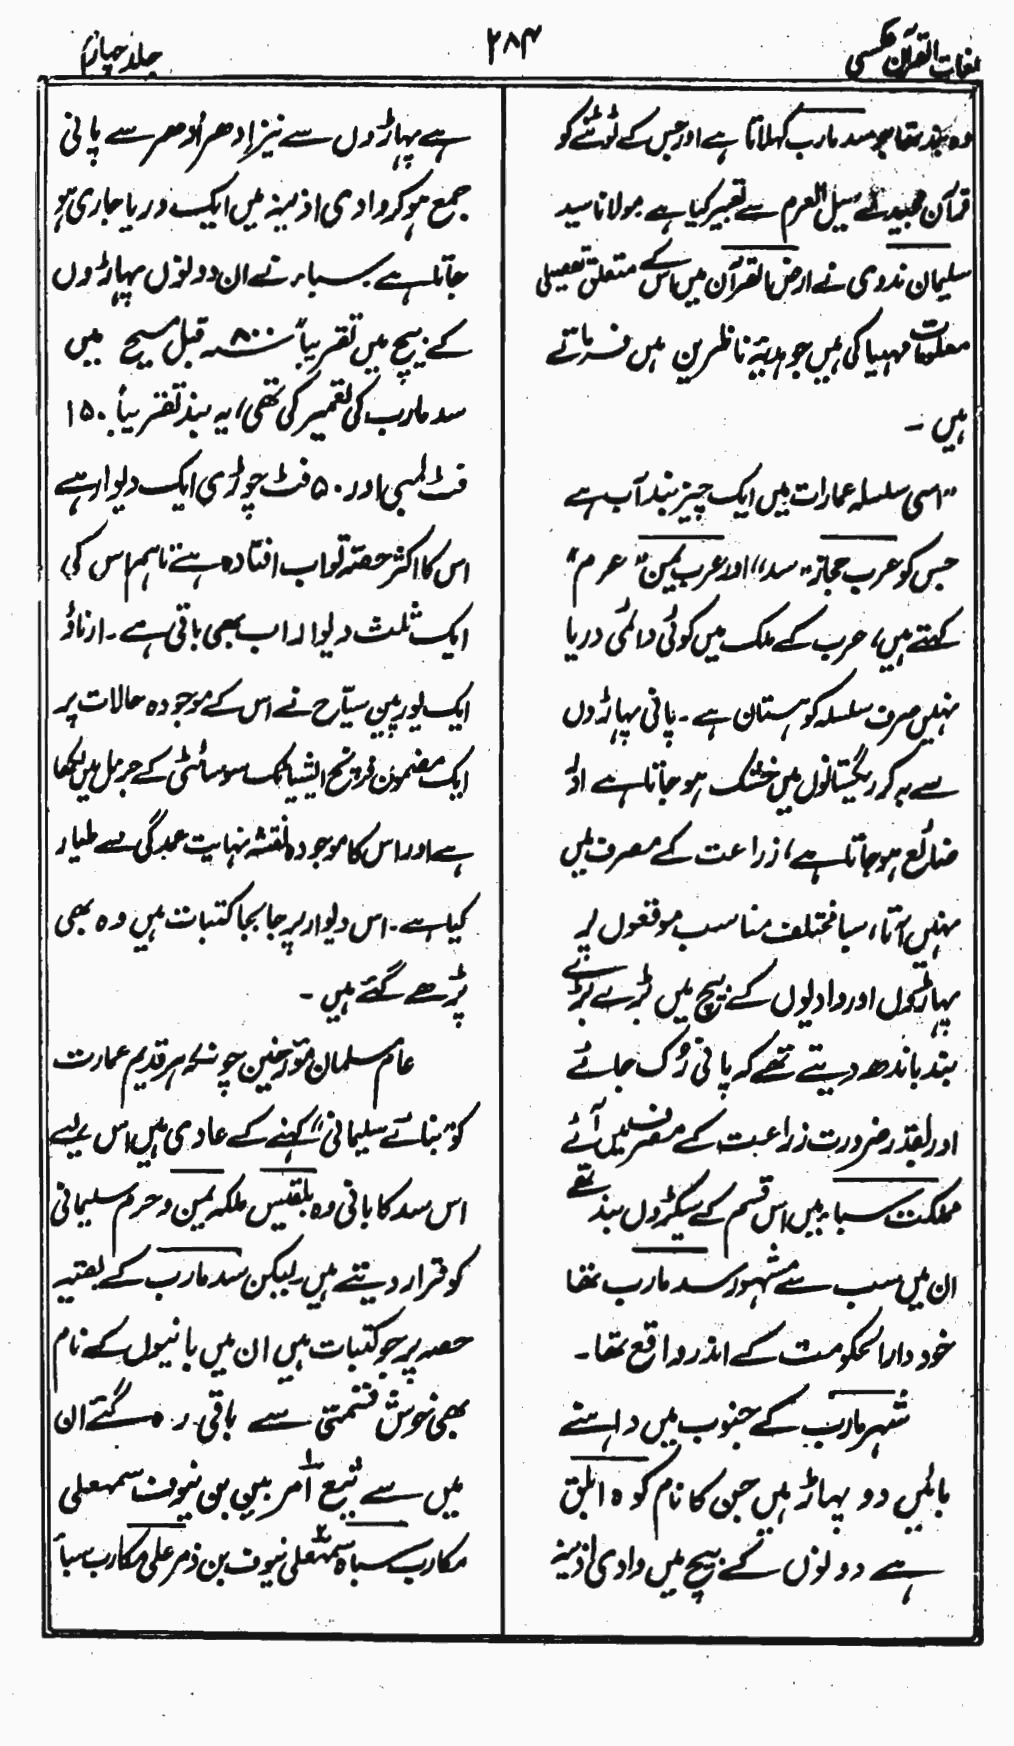 لغات القرآن عکسی
۲۸۴
جلد چہارم
وہ بند تھا جو سد مارب کہلاتا ہے اور جس کے ٹوٹنے کو
قرآن مجید نے سیل العرم سے تعبیر کیا ہے مولانا سید
سلیمان ندوی نے ارض القرآن میں اس کے متعلق تفصیلی
معلومات مہیا کی ہیں جو ہدیۂ ناظرین ہیں فرماتے
ہیں ۔
"اسی سلسلہ عمارات میں ایک چیز بند آب ہے
جس کو عرب حجاز "سد" اور عرب یمن "عرم"
کہتے ہیں، عرب کے ملک میں کوئی دائمی دریا
نہیں صرف سلسلہ کوہستان ہے ۔ پانی پہاڑوں
سے بہ کر ریگستانوں میں خشک ہو جاتا ہے اور
ضائع ہو جاتا ہے، زراعت کے مصرف میں
نہیں آتا، سبا مختلف مناسب موقعوں پر
پہاڑوں اور وادیوں کے بیچ میں بڑے بڑے
بند باندھ دیتے تھے کہ پانی رُک جائے
اور بقدر ضرورت زراعت کے مصرف میں آئے
مملکت سباء میں اس قسم کے سیکڑوں بند تھے
ان میں سب سے مشہور سد مارب تھا
خود دارالحکومت کے اندر واقع تھا ۔
شہر مارب کے جنوب میں داہنے
بائیں دو پہاڑ ہیں جن کا نام کوہ ابلق
ہے دونوں کے بیچ میں وادی اذینہ
ہے پہاڑوں سے نیز اِدھر اُدھر سے پانی
جمع ہو کر وادی اذینہ میں ایک دریا جاری ہو
جاتا ہے سباء نے ان دونوں پہاڑوں
کے بیچ میں تقریباً ۸۰۰ سنہ قبل مسیح میں
سد مارب کی تعمیر کی تھی، یہ بند تقریباً ۱۵۰
فٹ لمبی اور ۵۰ فٹ چوڑی ایک دیوار ہے
اس کا اکثر حصہ تو اب افتادہ ہے تاہم اس کی
ایک ثلث دیوار اب بھی باقی ہے ۔ ارناڈ
ایک یورپین سیّاح نے اس کے موجودہ حالات پر
ایک مضمون فرنچ ایشیاٹک سوسائٹی کے جرنل میں لکھا
ہے اور اس کا موجودہ نقشہ نہایت عمدگی سے طیار
کیا ہے ۔ اس دیوار پر جا بجا کتبات ہیں وہ بھی
پڑھے گئے ہیں ۔
عام مسلمان مؤرخین چونکہ ہر قدیم عمارت
کو "بنائے سلیمانی" کہنے کے عادی ہیں اس لیے
اس سد کا بانی وہ بلقیس ملکہ یمن و حرم سلیمانی
کو قرار دیتے ہیں لیکن سد مارب کے بقیہ
حصہ پر جو کتبات ہیں ان میں بانیوں کے نام
بھی خوش قسمتی سے باقی رہ گئے ان
میں سے یثع امر بین بن سمہعلی
مکارب سباء سمہعلی بن ذمر علی مکارب سبأ